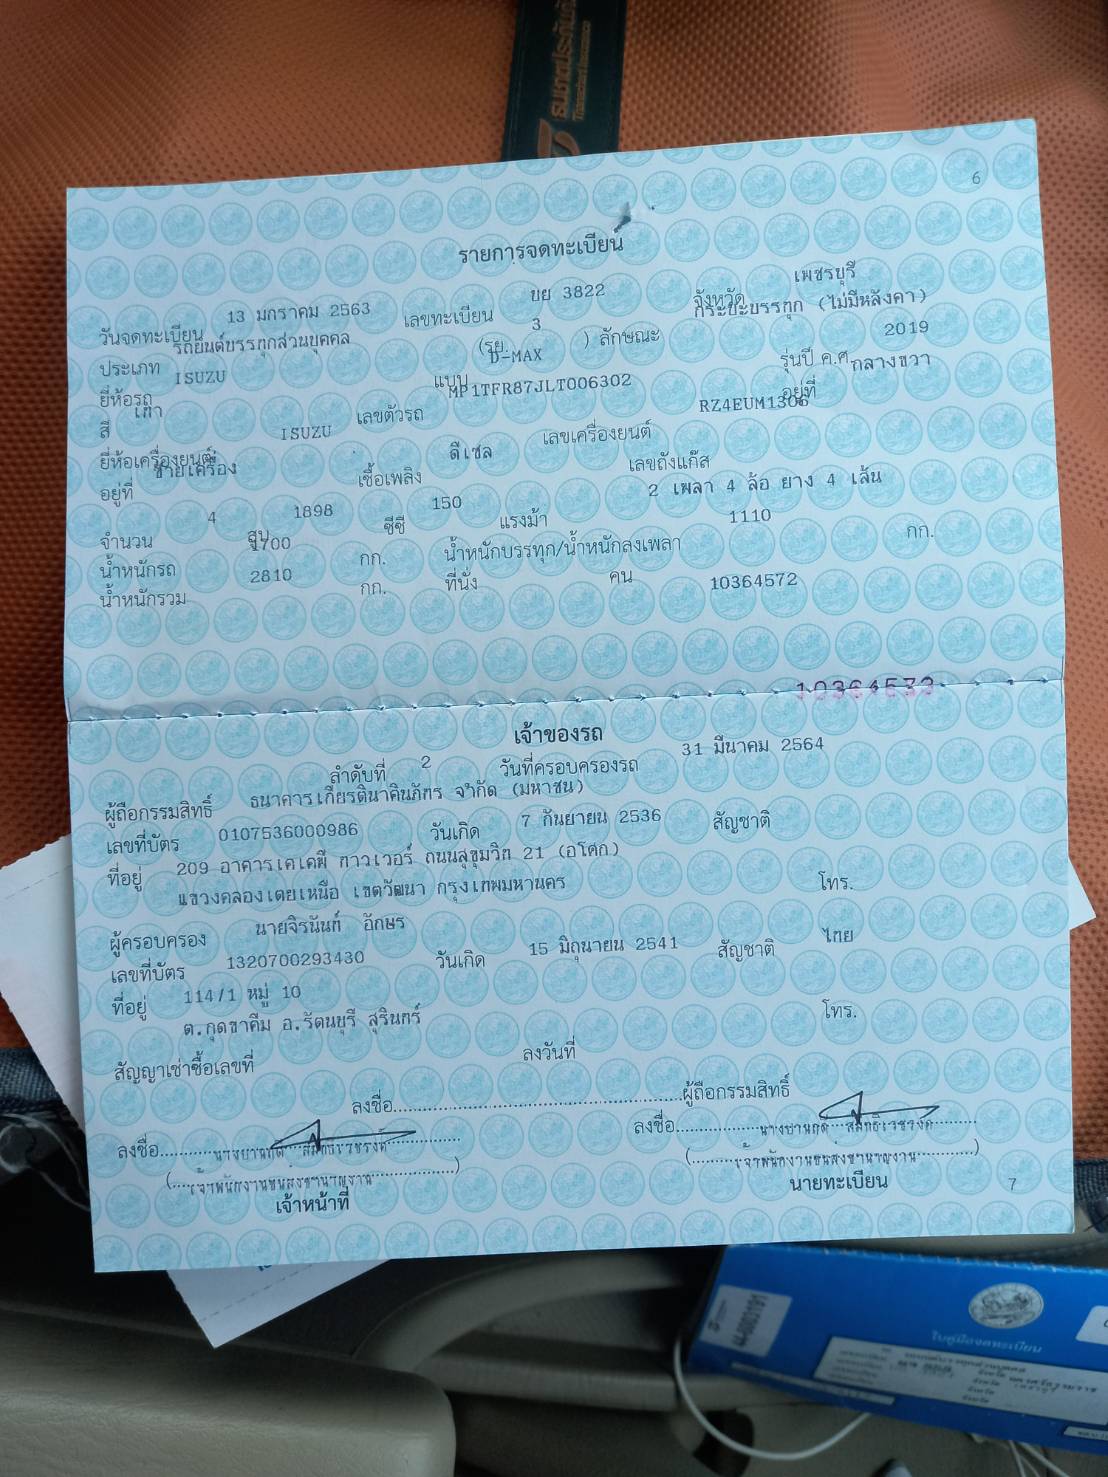 ธนชาตประกันภัย
Thanachart Insurance
6
รายการจดทะเบียน
วันจดทะเบียน 13 มกราคม 2563 เลขทะเบียน ขย 3822 จังหวัด เพชรบุรี
ประเภท รถยนต์บรรทุกส่วนบุคคล (รย. 3 ) ลักษณะ กระบะบรรทุก (ไม่มีหลังคา)
ยี่ห้อรถ ISUZU แบบ D-MAX รุ่นปี ค.ศ. 2019
สี เทา เลขตัวรถ MP1TFR87JLT006302 อยู่ที่ กลางขวา
ยี่ห้อเครื่องยนต์ ISUZU เลขเครื่องยนต์ RZ4EUM1306
อยู่ที่ ซ้ายเครื่อง เชื้อเพลิง ดีเซล เลขถังแก๊ส
จำนวน 4 สูบ 1898 ซีซี 150 แรงม้า 2 เพลา 4 ล้อ ยาง 4 เส้น
น้ำหนักรถ 1700 กก. น้ำหนักบรรทุก/น้ำหนักลงเพลา 1110 กก.
น้ำหนักรวม 2810 กก. ที่นั่ง คน 10364572
เจ้าของรถ
ลำดับที่ 2 วันที่ครอบครองรถ 31 มีนาคม 2564
ผู้ถือกรรมสิทธิ์ ธนาคารเกียรตินาคินภัทร จำกัด (มหาชน)
เลขที่บัตร 0107536000986 วันเกิด 7 กันยายน 2536 สัญชาติ
ที่อยู่ 209 อาคารเคเคพี ทาวเวอร์ ถนนสุขุมวิท 21 (อโศก)
แขวงคลองเตยเหนือ เขตวัฒนา กรุงเทพมหานคร โทร.
ผู้ครอบครอง นายจิรนันท์ อักษร
เลขที่บัตร 1320700293430 วันเกิด 15 มิถุนายน 2541 สัญชาติ ไทย
ที่อยู่ 114/1 หมู่ 10
ต.กุดขาคีม อ.รัตนบุรี สุรินทร์ โทร.
สัญญาเช่าซื้อเลขที่ ลงวันที่
ลงชื่อ..........ผู้ถือกรรมสิทธิ์
ลงชื่อ.......... ลงชื่อ..........
(เจ้าพนักงานขนส่งชำนาญงาน) (เจ้าพนักงานขนส่งชำนาญงาน)
เจ้าหน้าที่ นายทะเบียน
7
ใบคู่มือจดทะเบียน